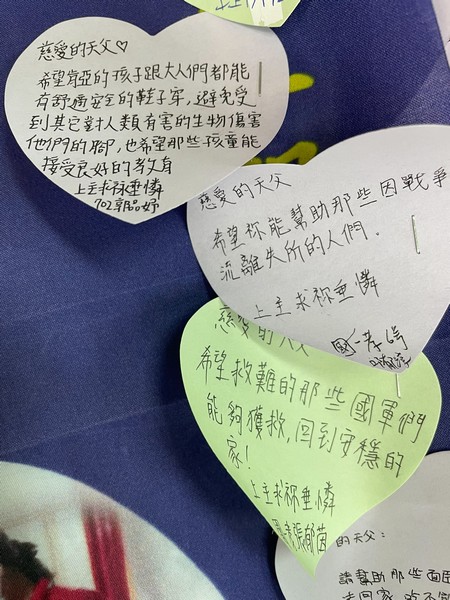 慈愛的天父♡
希望肯亞的孩子跟大人們都能
有舒適安全的鞋子穿,避免受
到其它對人類有害的生物傷害
他們的腳,也希望那些孩童能
接受良好的教育
上主求祢垂憐
702郭品妤
慈愛的天父
希望祢能幫助那些因戰爭
流離失所的人們.
上主求祢垂憐
國一孝
慈愛的天父
希望救難的那些國軍們
能夠獲救,回到安穩的
家!
上主求祢垂憐
張郁茵
的天父:
請幫助那些面